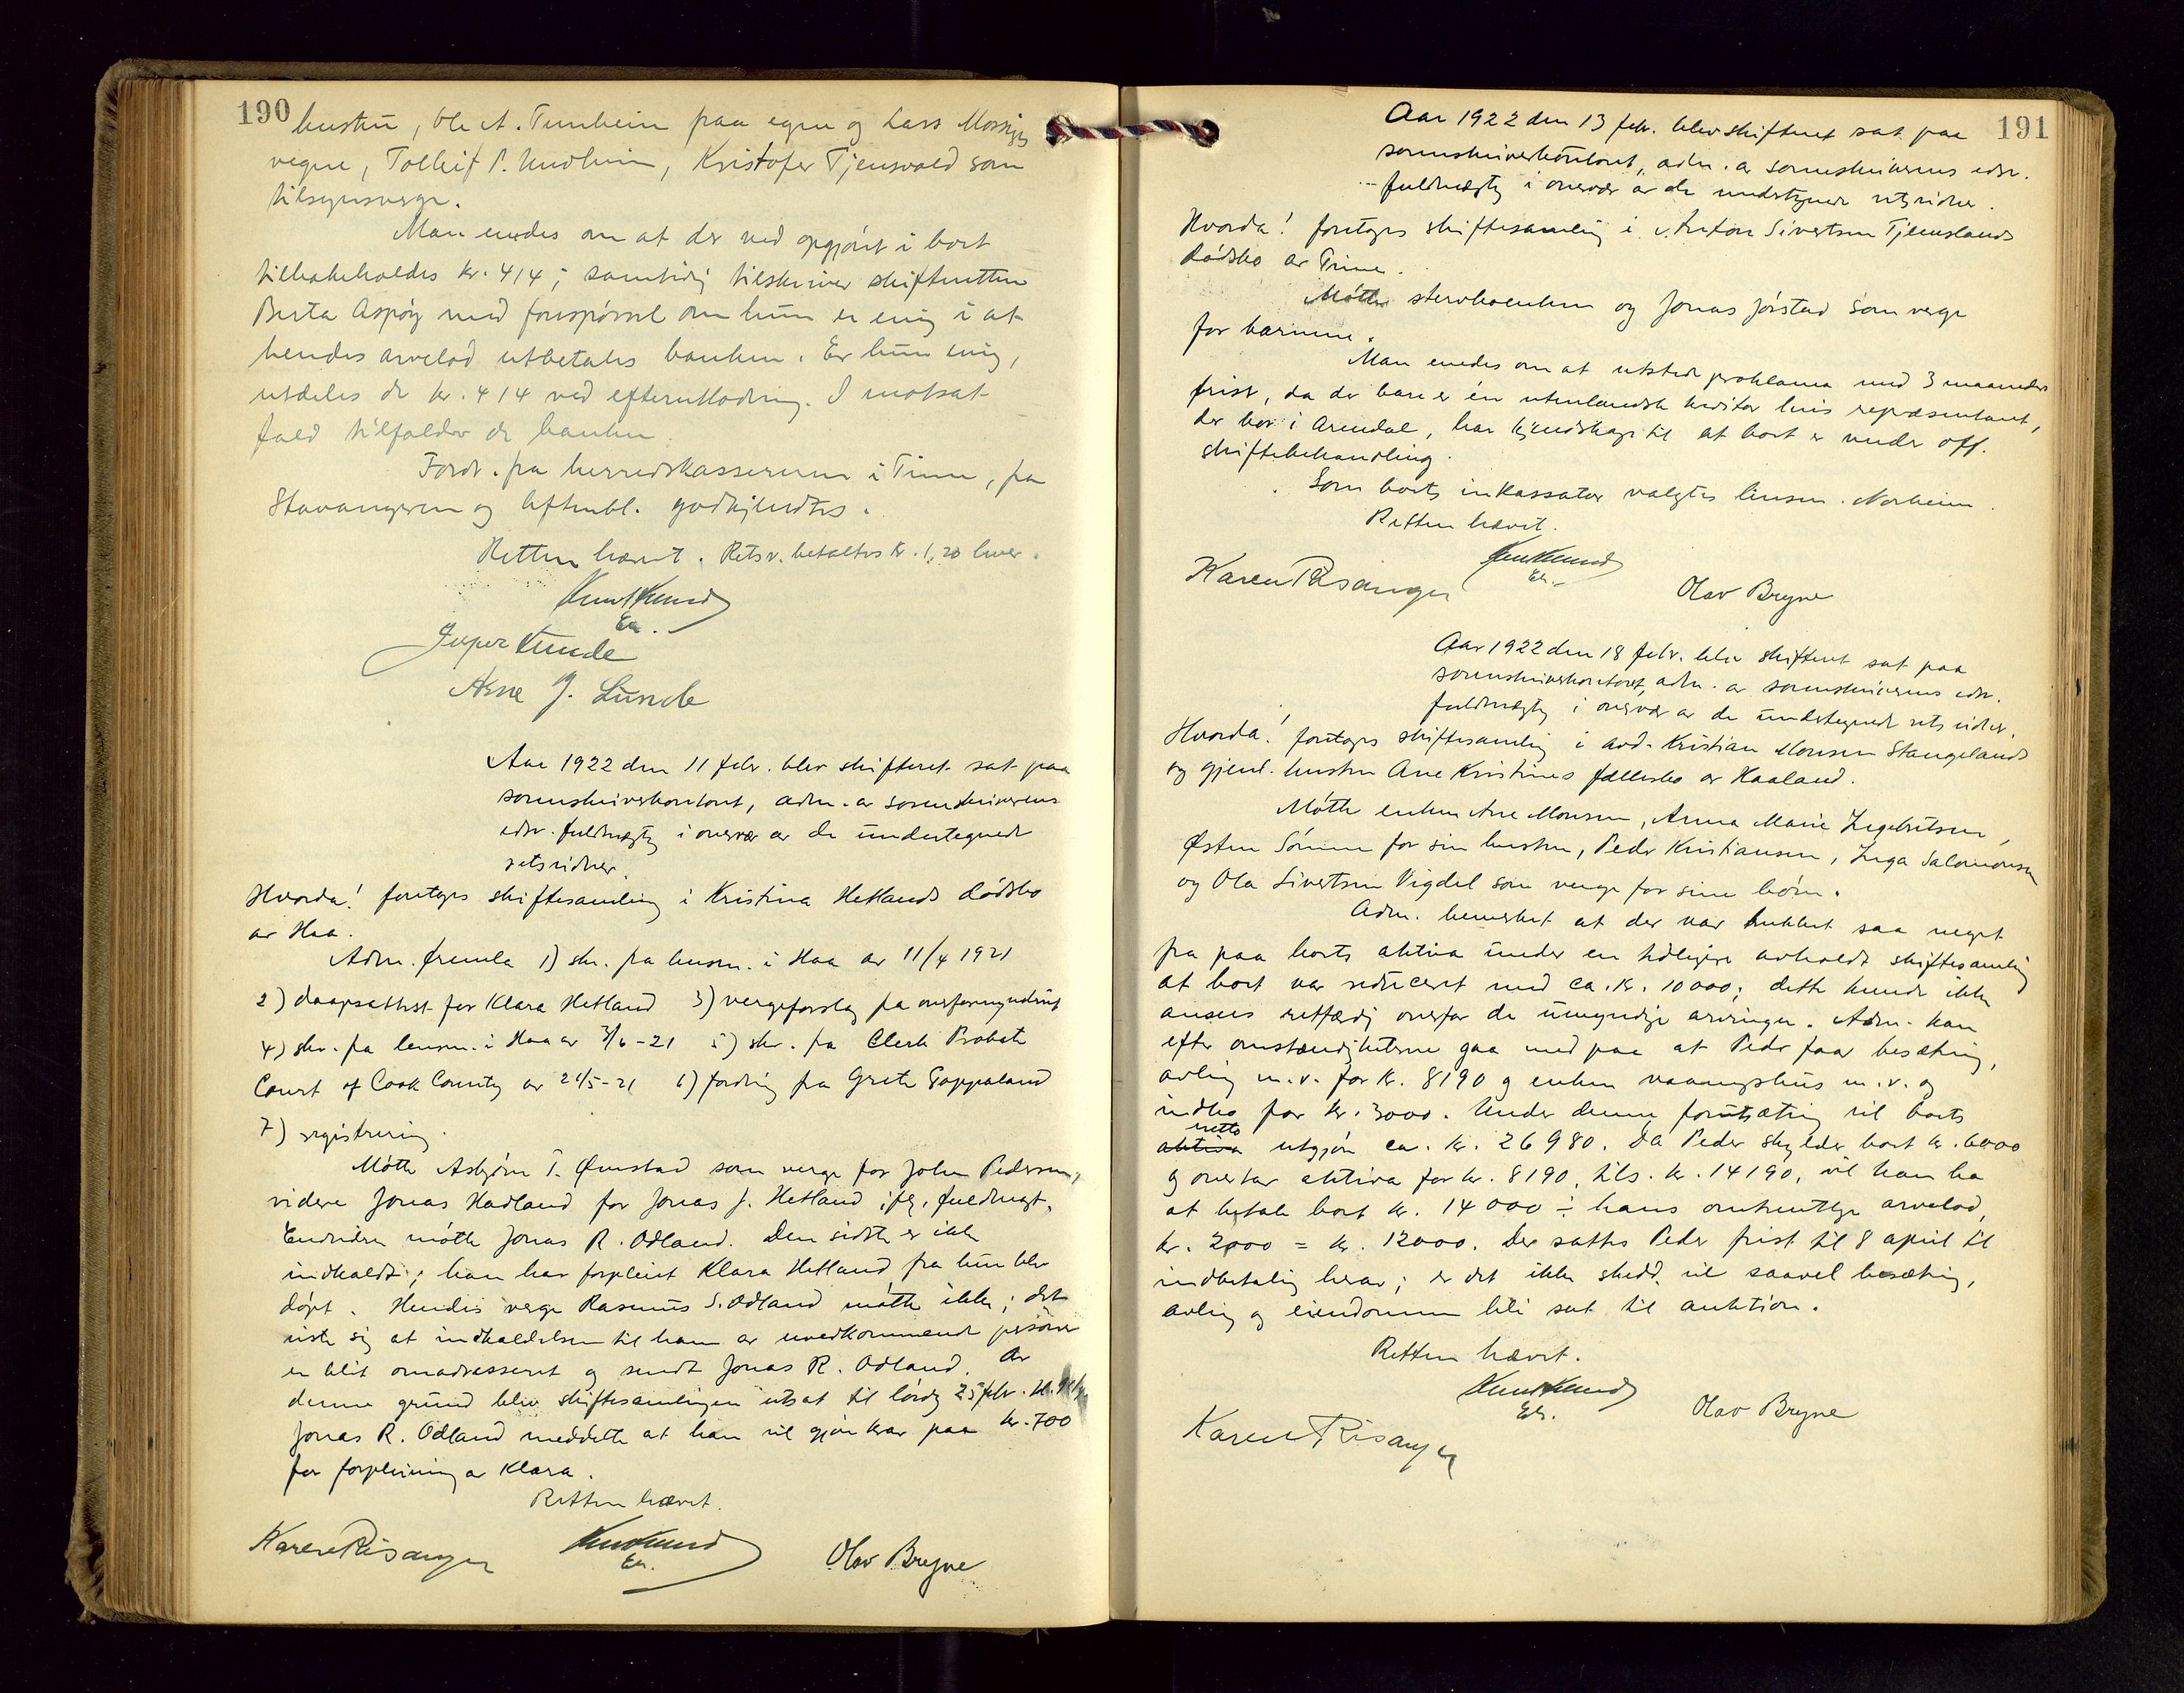 190
hustru, Ole A. Tunheim paa egne og Lars Mossiges
vegne, Tolleif P. Undheim, Kristofer Tjensvold som
tilsynsverge.
Man enedes om at der ved opgjøret i boet
tilbakeholdes kr. 414; samtidig tilskriver skifteretten
Berta Aspøy med forespørsel om hun er enig i at
hendes arvelod utbetales banken. Er hun enig,
utdeles de kr. 414 ved efterutlodning. I motsat
fald tilfalder de banken.
Fordr. fra herredskassereren i Time, fra
Stavangeren og Aftenbl. godkjendtes.
Retten hævet. Retsv. betaltes kr. 1,20 hver.
Knut Kunud
Ea.
Jesper Lunde
Arne J. Lunde
Aar 1922 den 11 febr. blev skifteret sat paa
sorenskriverkontoret, adm. av sorenskriverens
edsv. fuldmægtig i overvær av de undertegnede
retsvidner.
Hvorda! foretoges skiftesamling i Kristina Hetlands dødsbo
av Haa.
Adm. fremla 1) skr. fra lensm. i Haa av 11/4 1921
2) daapsattest for Klara Hetland 3) vergeforslag fra overformynderiet
4) skr. fra lensm. i Haa av 3/6-21 5) skr. fra Clerk Probate
Court of Cook County av 21/5-21 6) fordring fra Grete Goppaland
7) registrering.
Møtte Asbjørn T. Ømstad som verge for John Pedersen,
videre Jonas Hadland for Jonas J. Hetland ifg. fuldmagt.
Endvidere møtte Jonas R. Odland. Den sidste er ikke
indkaldt; han har forpleiet Klara Hetland fra hun blev
døpt. Hendes verge Rasmus S. Odland møtte ikke; det
viste sig at indkaldelsen til ham av uvedkommende personer
er blit omadresseret og sendt Jonas R. Odland. Av
denne grund blev skiftesamlingen utsat til lørdag 25 febr. kl.
Jonas R. Odland meddelte at han vil gjøre krav paa kr. 700
for forpleining av Klara.
Retten hævet.
Karen Risanger Knut Kunud Olav Bryne
Ea.
191
Aar 1922 den 13 febr. blev skifteret sat paa
sorenskriverkontoret, adm. av sorenskriverens edsv.
fuldmægtig i overvær av de undertegnede retsvidner.
Hvorda! foretoges skiftesamling i Anton Sivertsen Tjemslands
dødsbo av Time.
Møtte stervboenken og Jonas Jørstad som verge
for barnene.
Man enedes om at utstede proklama med 3 maaneders
frist, da der bare er én utenlandsk kreditor hvis repræsentant,
der bor i Arendal, har kjendskap til at boet er under off.
skiftebehandling.
Som boets inkassator valgtes lensm. Norheim.
Retten hævet.
Karen Risanger Knut Kunud Olav Bryne
Ea.
Aar 1922 den 18 febr. blev skifteret sat paa
sorenskriverkontoret, adm. av sorenskriverens edsv.
fuldmægtig i overvær av de undertegnede retsvidner.
Hvorda! foretoges skiftesamling i avd. Kristian Monsen Stangelands
og gjenl. hustru Ane Kristines fællesbo av Haaland.
Møtte enken Ane Monsen, Anna Marie Ingebritsen,
Østen Sømme for sin hustru, Peder Kristiansen, Inga Salomonsen
og Ola Sivertsen Vigdel som verge for sine børn.
Adm. bemerket at der var trukket saa meget
fra paa boets aktiva under en tidligere avholdt skiftesamling
at boet var reduceret med ca. kr. 10000; dette kunde ikke
ansees retfærdig overfor de umyndige arvinger. Adm. kan
efter omstændigheterne gaa med paa at Peder faar besætning,
avling m.v. for kr. 8190 og enken vaaningshus m.v. og
indbo for kr. 3000. Under denne forutsætning vil boets
netto
aktiva utgjøre ca. kr. 26980. Da Peder skylder boet kr. 6000
og overtar aktiva for kr. 8190, tils. kr. 14190, vil han ha
at betale boet kr. 14000 ÷ hans omtrentlige arvelod,
kr. 2000 = kr. 12000. Der sattes Peder frist til 8 april til
indbetaling herav; er det ikke skedd, vil saavel besætning,
avling og eiendommen bli sat til auktion.
Retten hævet.
Knut Kunud
Ea.
Karen Risanger Olav Bryne